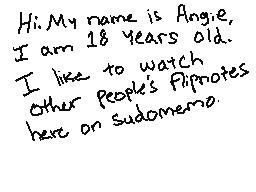 Hi. My name is Angie,
I am 18 years old.
I like to watch
other people's flipnotes
here on sudomemo.